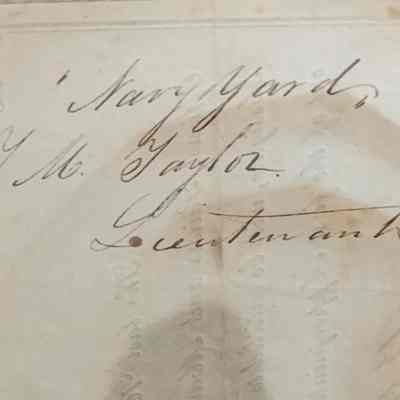 Navy Yard,
M. Taylor
Lieutenant